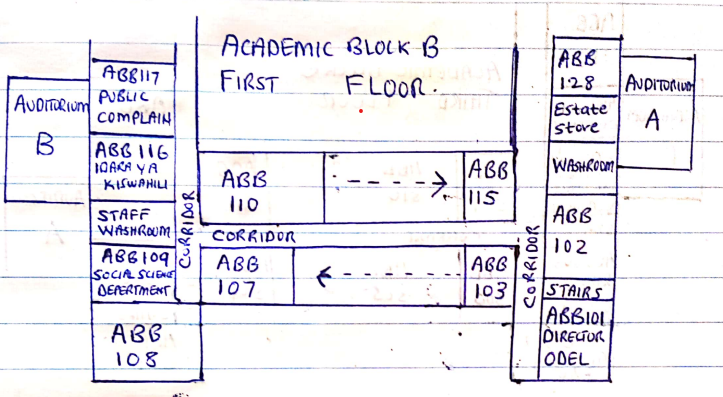 ACADEMIC BLOCK B
FIRST FLOOR.
AUDITORIUM
B
ABB117
PUBLIC
COMPLAIN
ABB 116
IDARA YA
KISWAHILI
STAFF
WASHROOM
ABB109
SOCIAL SCIENCE
DEPERTMENT
ABB
108
CORRIDOR
ABB
110
ABB
115
CORRIDOR
ABB
107
ABB
103
CORRIDOR
ABB
128
Estate
store
WASHROOM
ABB
102
STAIRS
ABB101
DIRECTOR
ODEL
AUDITORIUM
A